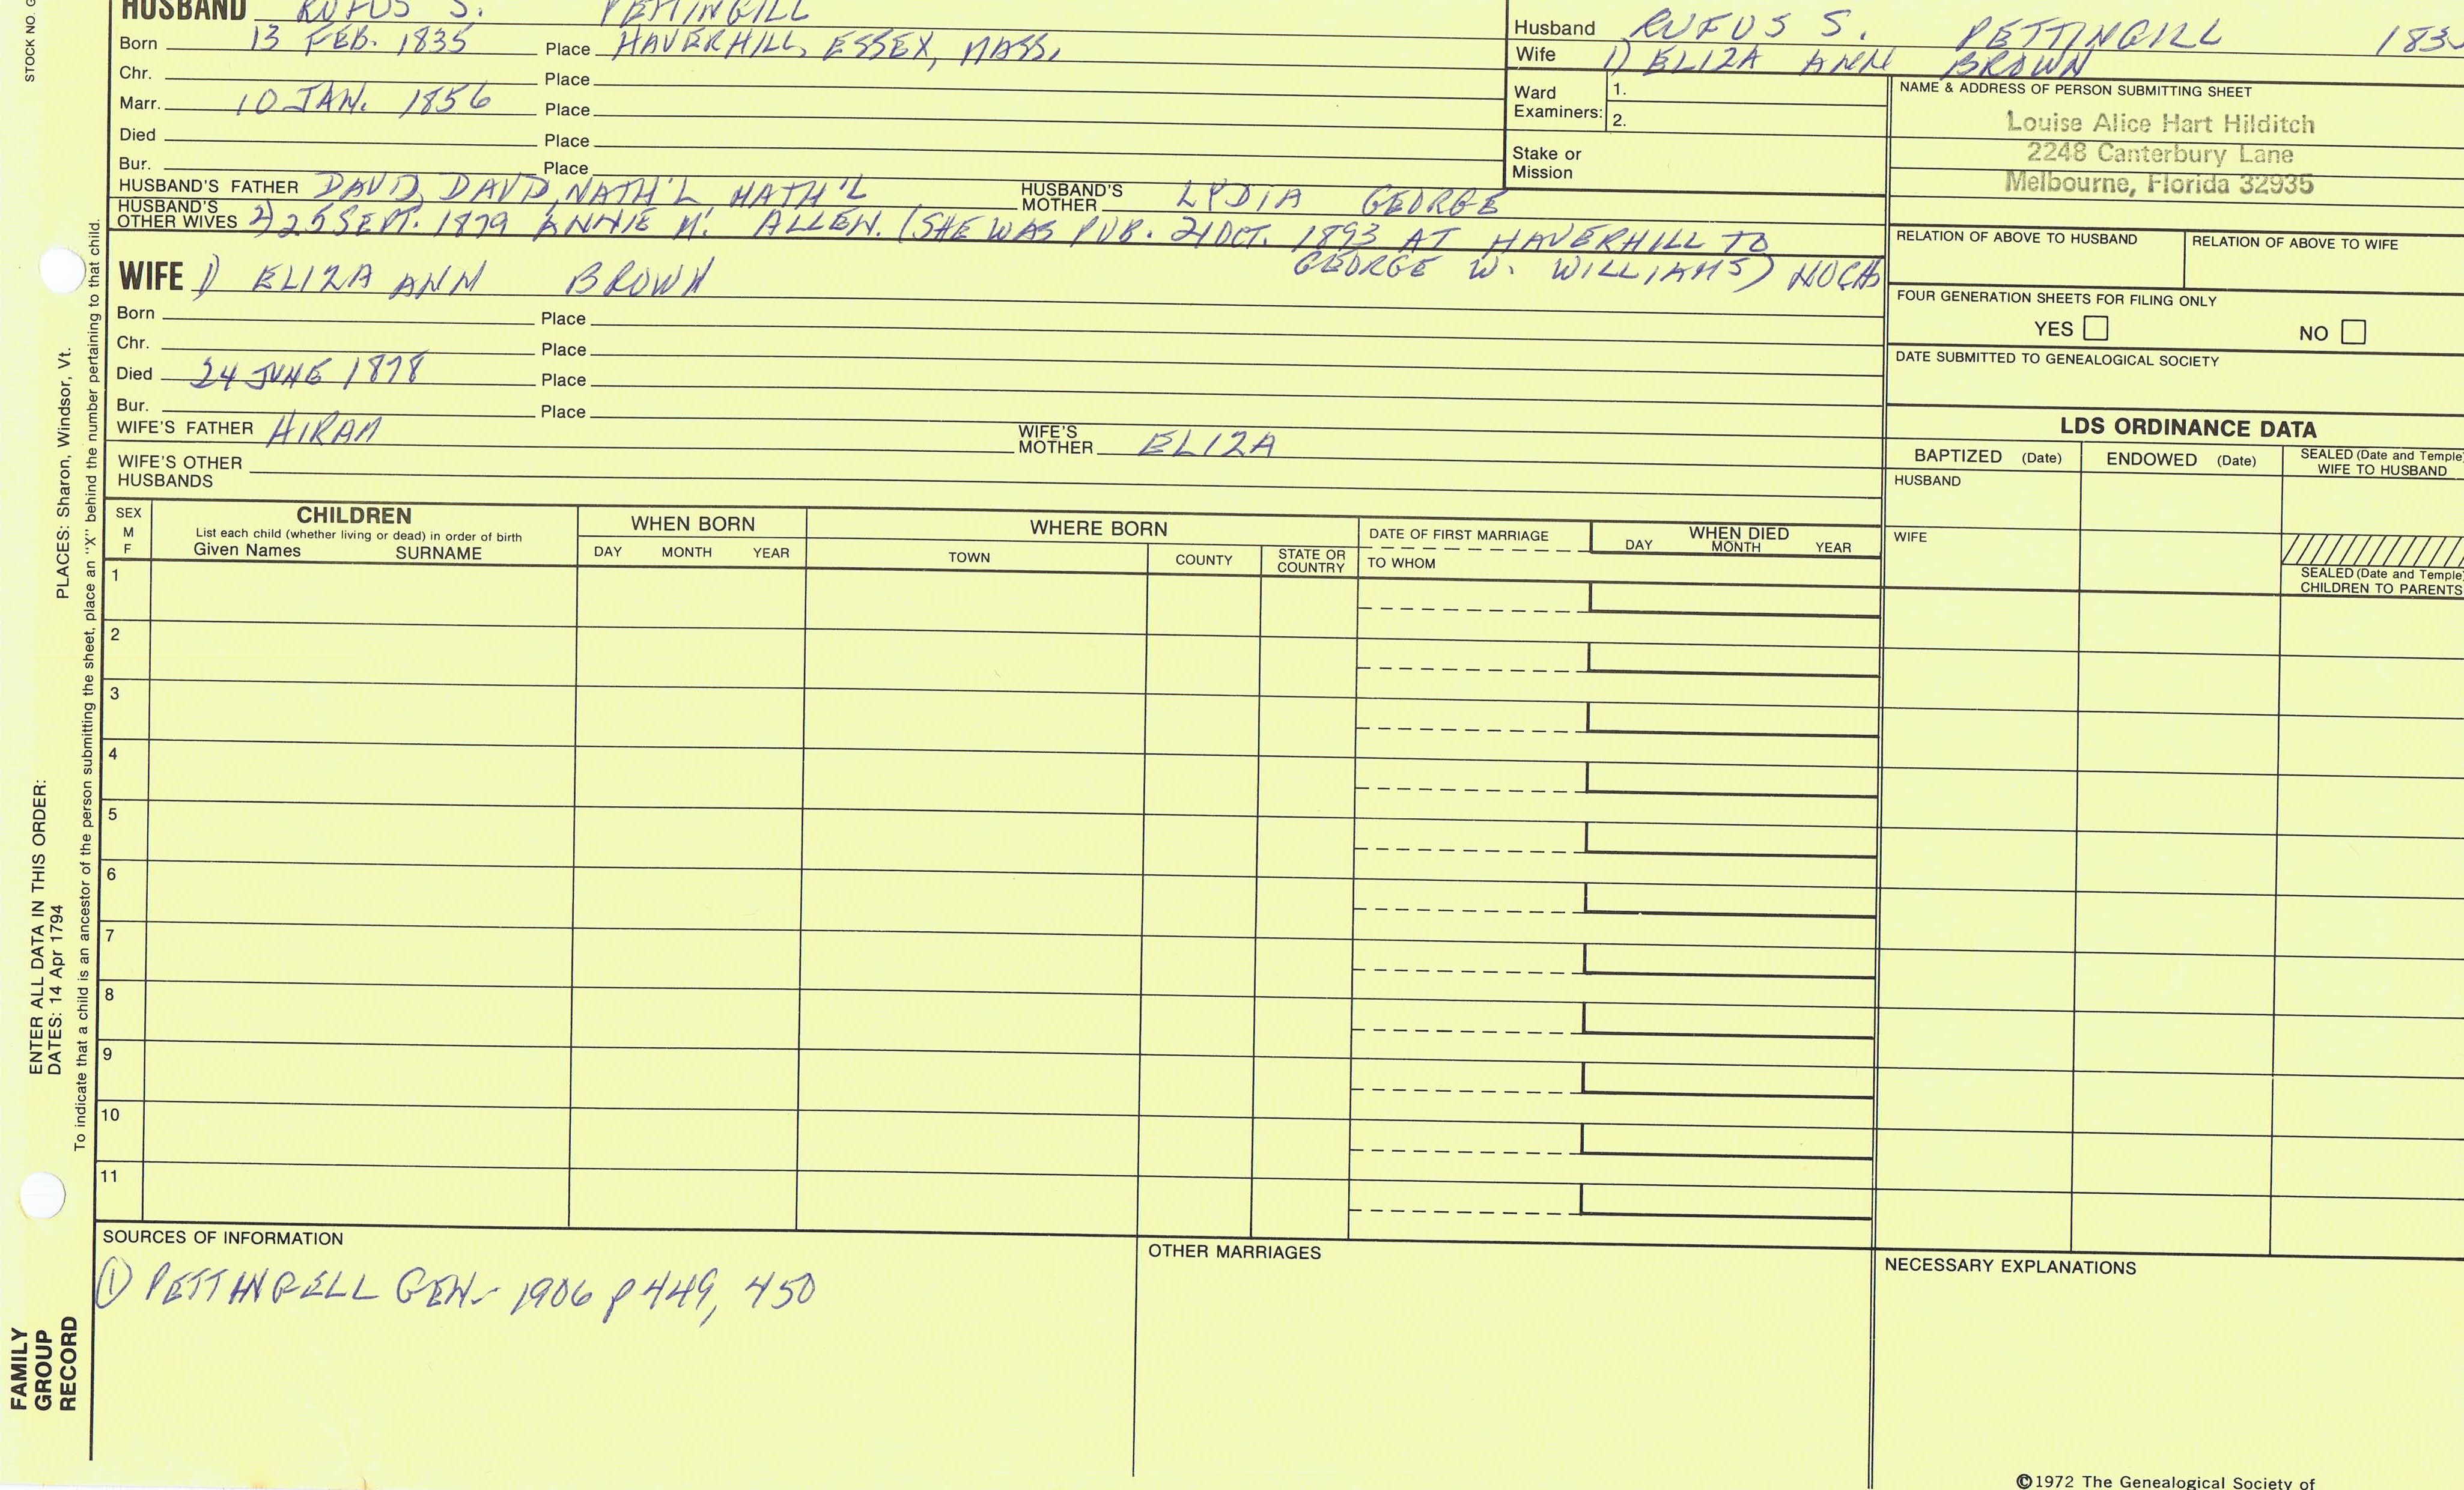 STOCK NO. G
HUSBAND RUFUS S. PETTINGILL
Born 13 FEB. 1835 Place HAVERHILL, ESSEX, MASS.
Chr. Place
Marr. 10 JAN. 1856 Place
Died Place
Bur. Place
HUSBAND'S FATHER DAVID, DAVID, NATH'L, NATH'L HUSBAND'S MOTHER LYDIA GEORGE
HUSBAND'S OTHER WIVES 2) 25 SEPT. 1879 ANNIE M. ALLEN. (SHE WAS PUB. 21 OCT. 1893 AT HAVERHILL TO
GEORGE W. WILLIAMS) NOCH
WIFE 1) ELIZA ANN BROWN
Born Place
Chr. Place
Died 24 JUNE 1878 Place
Bur. Place
WIFE'S FATHER HIRAM WIFE'S MOTHER ELIZA
WIFE'S OTHER HUSBANDS
Husband RUFUS S. PETTINGILL 183
Wife 1) ELIZA ANN BROWN
Ward Examiners: 1.
2.
Stake or Mission
NAME & ADDRESS OF PERSON SUBMITTING SHEET
Louise Alice Hart Hilditch
2248 Canterbury Lane
Melbourne, Florida 32935
RELATION OF ABOVE TO HUSBAND RELATION OF ABOVE TO WIFE
FOUR GENERATION SHEETS FOR FILING ONLY
YES NO
DATE SUBMITTED TO GENEALOGICAL SOCIETY
LDS ORDINANCE DATA
BAPTIZED (Date) ENDOWED (Date) SEALED (Date and Temple)
WIFE TO HUSBAND
HUSBAND
WIFE
SEALED (Date and Temple)
CHILDREN TO PARENTS
SEX
M
F
CHILDREN
List each child (whether living or dead) in order of birth
Given Names SURNAME
WHEN BORN
DAY MONTH YEAR
WHERE BORN
TOWN COUNTY STATE OR COUNTRY
DATE OF FIRST MARRIAGE
TO WHOM
WHEN DIED
DAY MONTH YEAR
1
2
3
4
5
6
7
8
9
10
11
SOURCES OF INFORMATION
① PETTINGELL GEN- 1906 p 449, 450
OTHER MARRIAGES
NECESSARY EXPLANATIONS
©1972 The Genealogical Society of
FAMILY
GROUP
RECORD
ENTER ALL DATA IN THIS ORDER:
DATES: 14 Apr 1794
PLACES: Sharon, Windsor, Vt.
To indicate that a child is an ancestor of the person submitting the sheet, place an "X" behind the number pertaining to that child.